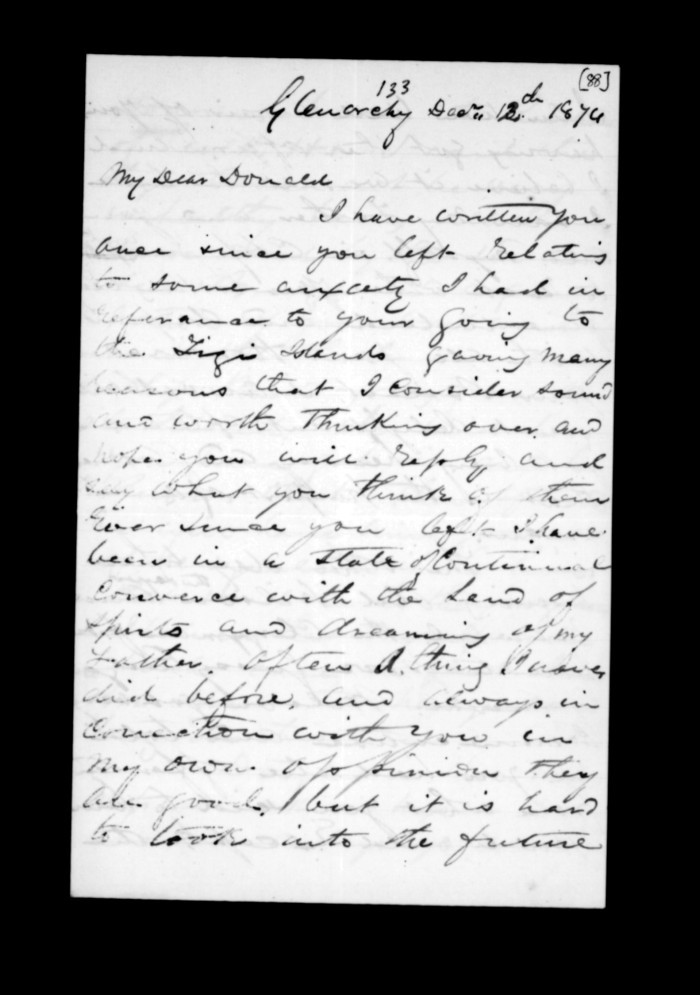 [88]
133
Glenorchy Decr 12th 1874
My Dear Donald
I have written you
once since you left Relating
to some anxcety I had in
referance to your going to
the Figi Islands gaving many
reasons that I consider sound
and worth thinking over and
hope you will reply and
say what you think of them
Ever since you left I have
been in a state of Continual
Converce with the Land of
Spirits and dreaming of my
Father. often A thing I never
did before, and always in
Conection with you in
my own oppinion they
are good, but it is hard
to look into the future